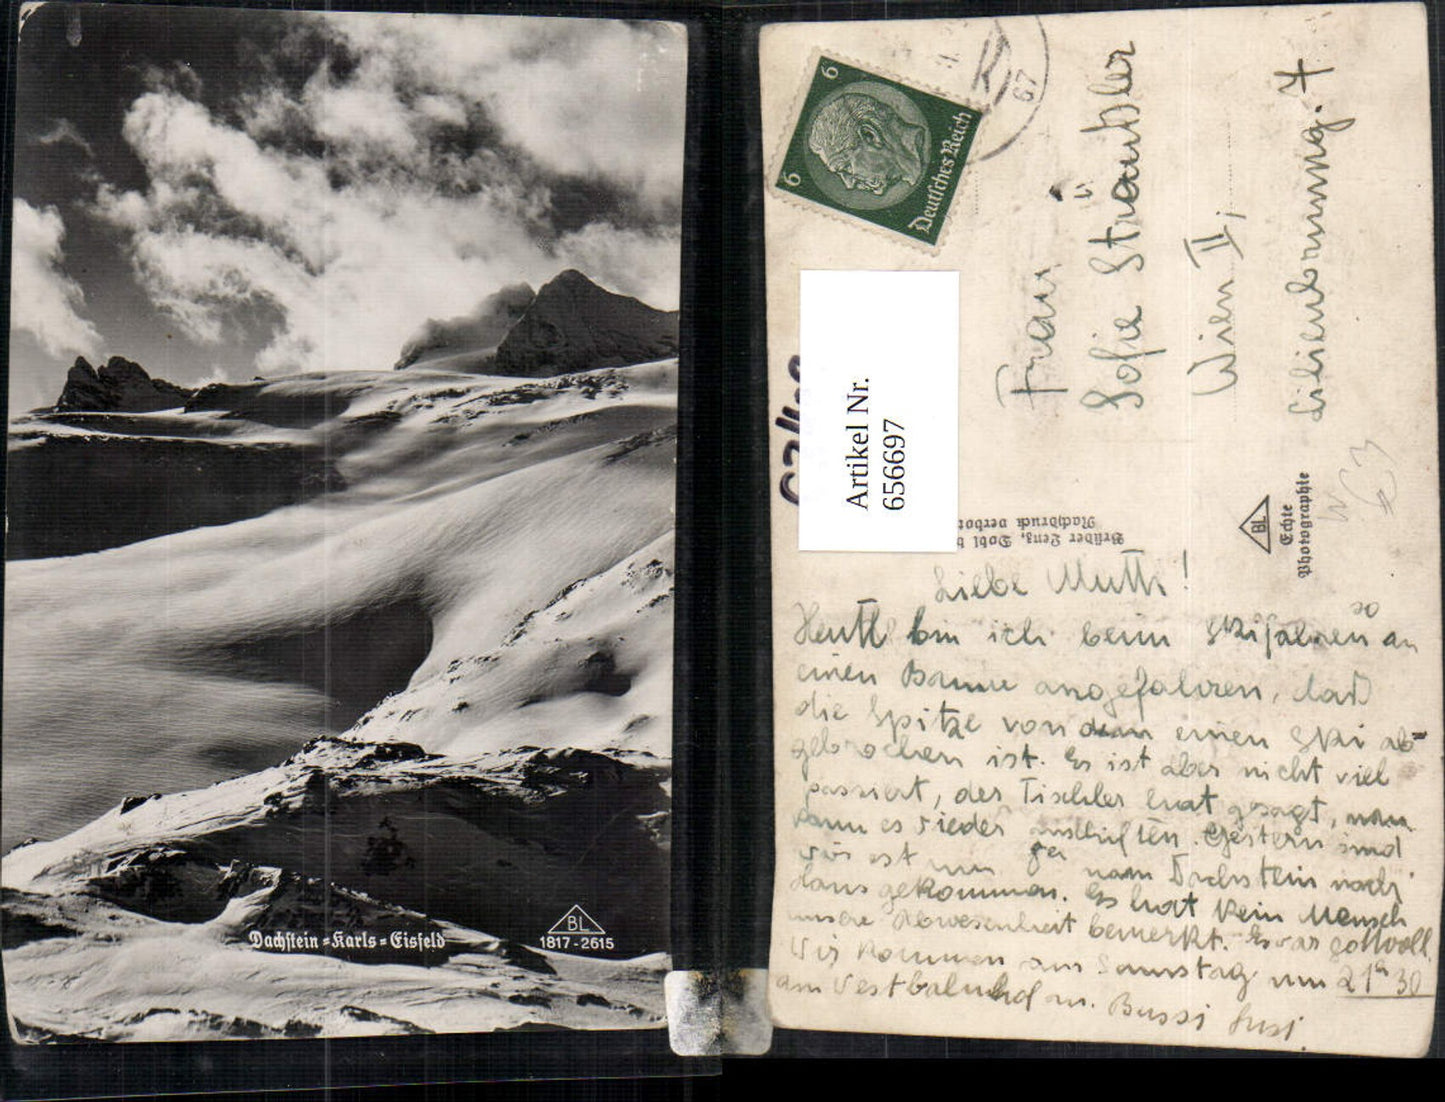 Dachstein-Karls-Eisfeld
BL
1817-2615
6
6
Deutsches Reich
67
Frau
Sofie Sträußler
Wien II,
Lilienbrunng. 7
Artikel Nr.
656697
Brüder Lenz, Dobl b
Nachdruck verbot
BL
Echte
Photographie
Liebe Mutti!
Heute bin ich beim Skifahren so an
einen Baum angefahren, daß
die Spitze von dem einen Ski ab-
gebrochen ist. Es ist aber nicht viel
passiert, der Tischler hat gesagt, man
kann es wieder anstiften. Gestern sind
wir erst um vom Dachstein nach
haus gekommen. Es hat kein Mensch
unsere Abwesenheit bemerkt. Es war
Wir kommen am Samstag um 21h 30
am Westbahnhof an. Bussi Susi.